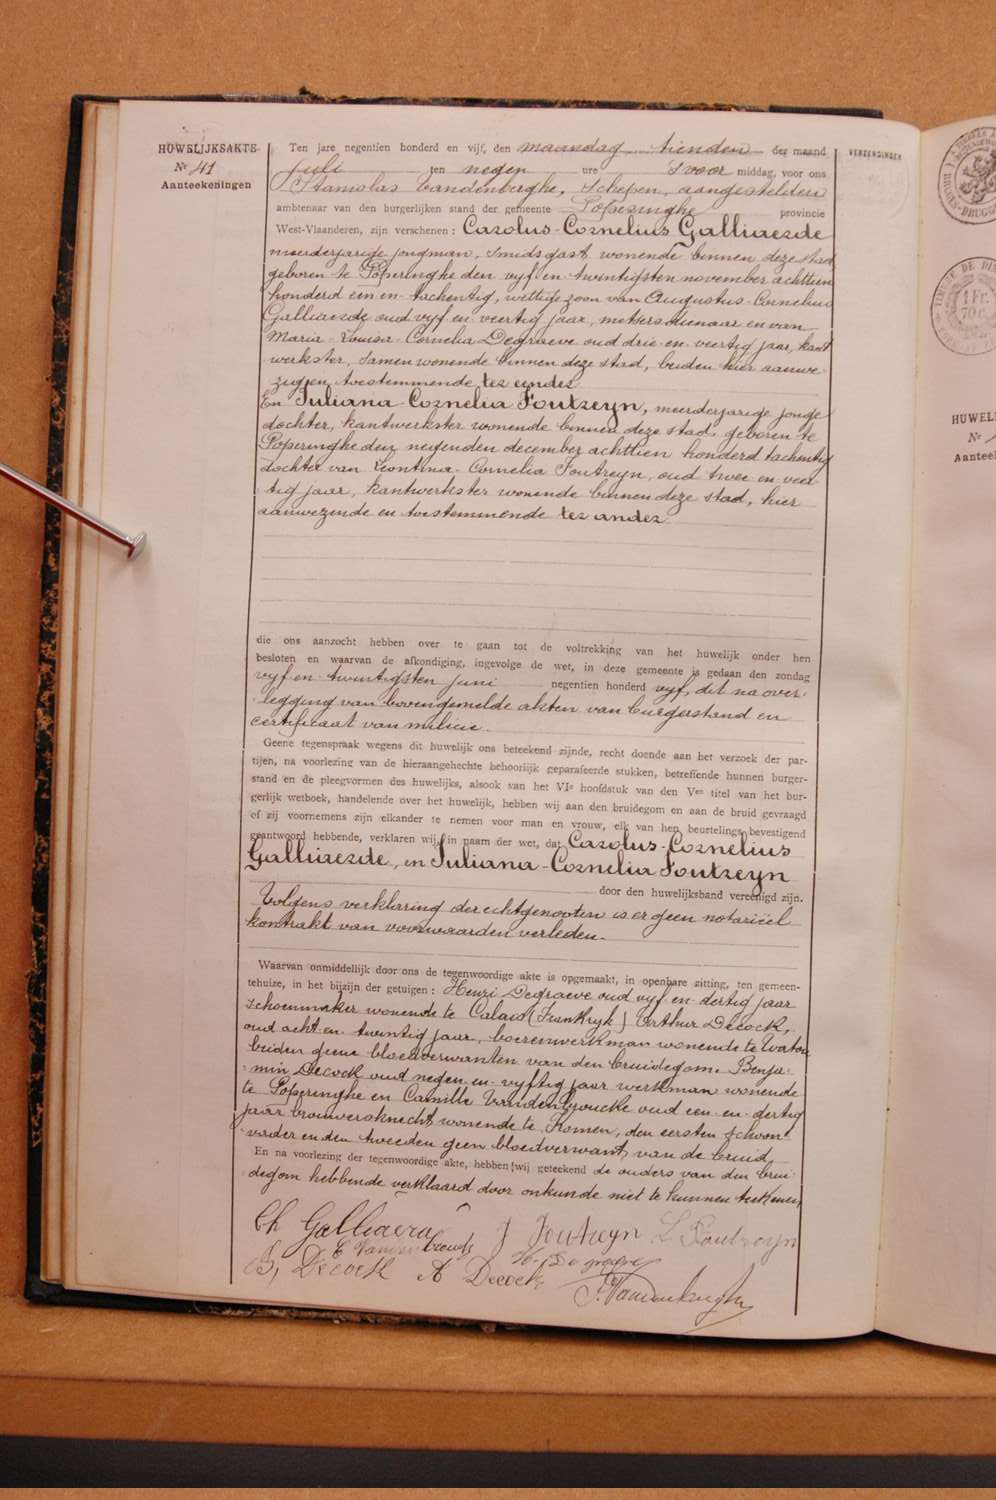 HUWELIJKSAKTE
Nr 41
Aanteekeningen
Ten jare negentien honderd en vijf, den maandag tienden der maand
juli ten negen ure s'voor middag, voor ons
Stanislas Vandenberghe, Schepen, aangestelden
ambtenaar van den burgerlijken stand der gemeente Poperinghe provincie
West-Vlaanderen, zijn verschenen : Carolus-Cornelius Galliaerde
meerderjarige jongman, smidsgast wonende binnen deze stad
geboren te Poperinghe den vyf en twintigsten november achttien
honderd een en tachentig, wettige zoon van Augustus-Cornelius
Galliaerde oud vyf en veertig jaar, metsersdienaar en van
Maria-Louisa-Cornelia Degraeve oud drie en veertig jaar, kant
werkster, samenwonende binnen deze stad, beiden hier aanwe-
zig en toestemmende ter eender
En Juliana Cornelia Foutreyn, meerderjarige jonge
dochter, kantwerkster wonende binnen deze stad, geboren te
Poperinghe den negenden december achttien honderd tachentig
dochter van Leontina-Cornelia Foutreyn, oud twee en veer
tig jaar, kantwerkster wonende binnen deze stad, hier
aanwezende en toestemmende ter ander
die ons aanzocht hebben over te gaan tot de voltrekking van het huwelijk onder hen
besloten en waarvan de afkondiging, ingevolge de wet, in deze gemeente is gedaan den zondag
vyf en twintigsten juni negentien honderd vyf, dit na over-
legging van bovengemelde akten van burgerstand en
certificaat van milicie.
Geene tegenspraak wegens dit huwelijk ons beteekend zijnde, recht doende aan het verzoek der par-
tijen, na voorlezing van de hieraangehechte behoorlijk geparafeerde stukken, betreffende hunnen burger-
stand en de pleegvormen des huwelijks, alsook van het VIe hoofdstuk van den Ven titel van het bur-
gerlijk wetboek, handelende over het huwelijk, hebben wij aan den bruidegom en aan de bruid gevraagd
of zij voornemens zijn elkander te nemen voor man en vrouw, elk van hen beurtelings bevestigend
geantwoord hebbende, verklaren wij, in naam der wet, dat Carolus-Cornelius
Galliaerde, en Juliana-Cornelia Foutreyn
door den huwelijksband vereenigd zijn.
Volgens verklaring der echtgenooten is er geen notariëel
kontrakt van voorwaarden verleden.
Waarvan onmiddelijk door ons de tegenwoordige akte is opgemaakt, in openbare zitting, ten gemeen-
tehuize, in het bijzijn der getuigen : Henri Degraeve oud vyf en dertig jaar
schoenmaker wonende te Calais (Frankryk) Arthur Decock,
oud acht en twintig jaar, boerenwerkman wonende te Watou
beiden geene bloedverwanten van den bruidegom. Benja-
min Decock oud negen en vyftig jaar werkman wonende
te Poperinghe en Camille Vandenbroucke oud een en dertig
jaar brouwersknecht wonende te Komen, den eersten schoon-
vader en den tweeden geen bloedverwant van de bruid
En na voorlezing der tegenwoordige akte, hebben wij geteekend de ouders van den brui
degom hebbende verklaard door onkunde niet te kunnen teekenen
Ch Galliaera J Foutreyn L Foutreyn
B, Decock A Decock
VERZENDINGEN
HUWELIJ
Nr
Aanteek
1 Fr.